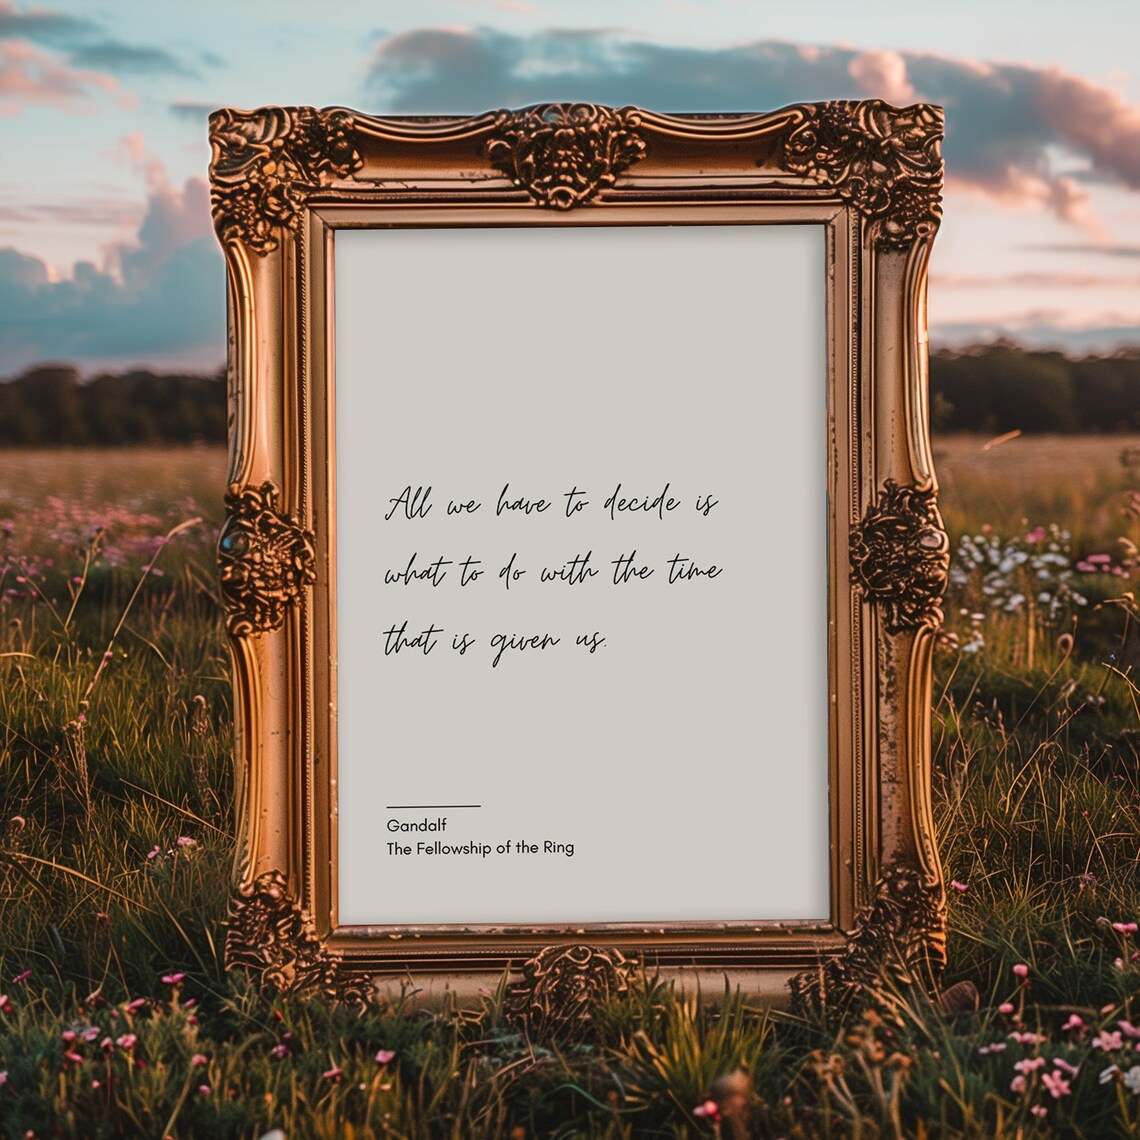 All we have to decide is
what to do with the time
that is given us.
Gandalf
The Fellowship of the Ring